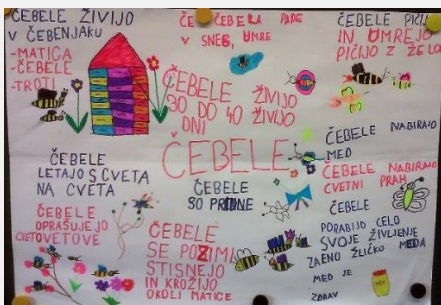 ČEBELE ŽIVIJO
V ČEBENJAKU
-MATICA
-ČEBELE
-TROTI
ČE ČEBELA PADE
V SNEG, UMRE
ČEBELE PIČIJO
IN UMREJO
PIČIJO Z ŽELA
ČEBELE ŽIVIJO
30 DO 40 ŽIVIJO
DNI
ČEBELE
ČEBELE NABIRAJO
MED
ČEBELE NABIRAJO
CVETNI PRAH
ČEBELE
LETAJO S CVETA
NA CVETA
ČEBELE
SO PRIDNE
ČEBELE
OPRAŠUJEJO
CVETOVE
ČEBELE
SE POZIMI
STISNEJO
IN KROŽIJO
OKOLI MATICE
ČEBELE
PORABIJO CELO
SVOJE ŽIVLJENJE
ZA ENO ŽLIČKO MEDA
MED JE
ZDRAV